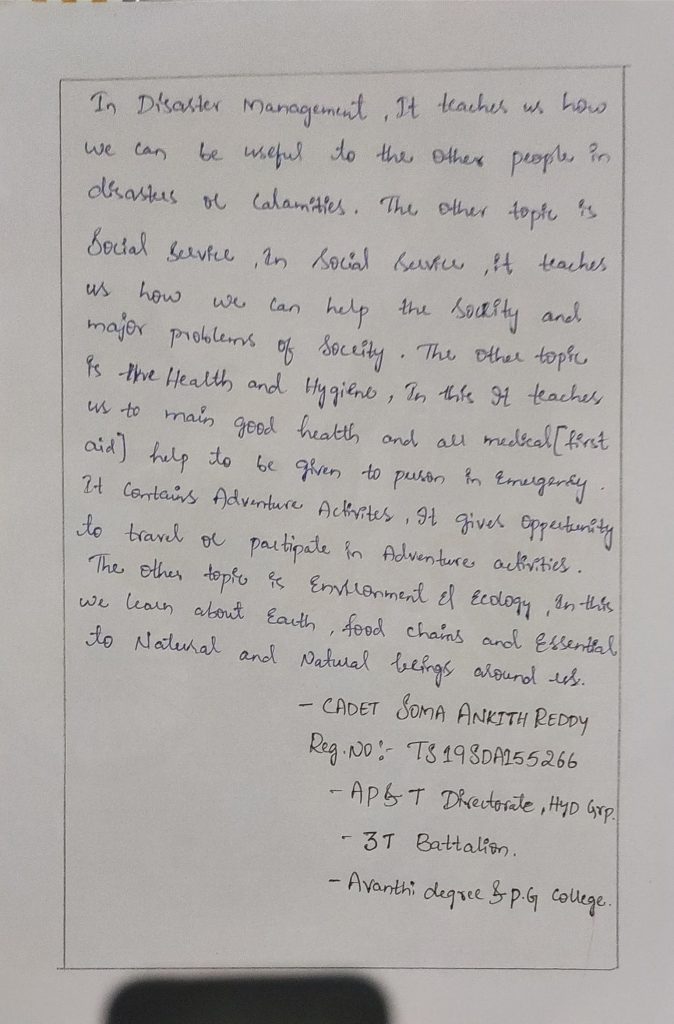 In Disaster Management, It teaches us how
we can be useful to the other people in
disasters or Calamities. The other topic is
Social Service, In Social Service, it teaches
us how we can help the Soceity and
major problems of Soceity. The other topic
is the Health and Hygiene, In this It teaches
us to main good health and all medical [first
aid] help to be given to person in Emergency.
It Contains Adventure Activites, It gives oppertunity
to travel or partipate in Adventure activities.
The other topic is Envilonment & Ecology, In this
we learn about Earth, food chains and Essential
to Natural and Natural beings around us.
- CADET SOMA ANKITH REDDY
Reg. NO:- TS19SDA155266
- AP & T Directorate, HYD Grp.
- 3T Battalion.
- Avanthi degree & P.G College.